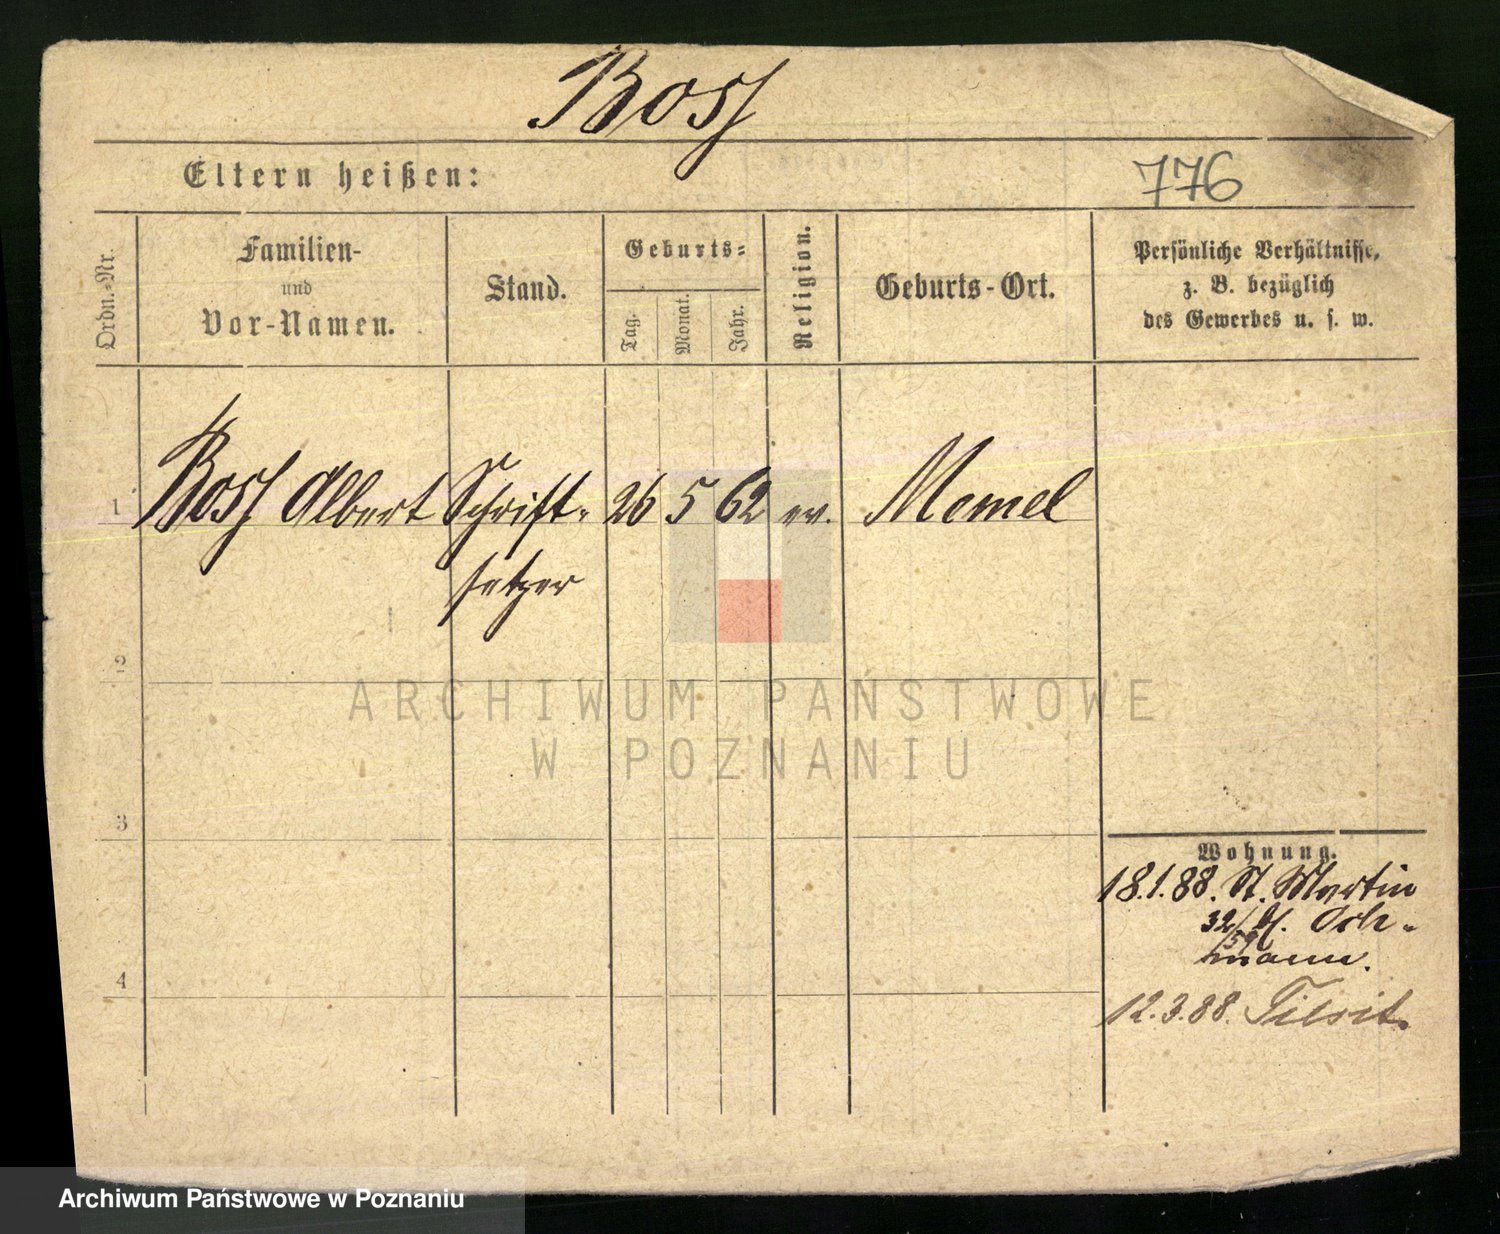 Boss
Eltern heißen:
776
Ordn.-Nr.
Familien-
und
Vor-Namen.
Stand.
Geburts-
Tag.
Monat.
Jahr.
Religion.
Geburts-Ort.
Persönliche Verhältnisse,
z. B. bezüglich
des Gewerbes u. s. w.
1 Boss Albert Schrift- 26 5 62 ev. Memel
setzer
2
ARCHIWUM PAŃSTWOWE
W POZNANIU
3
Wohnung.
18.1.88. St. Martin
32/59
mann.
4
12.3.88. Tilsit.
Archiwum Państwowe w Poznaniu